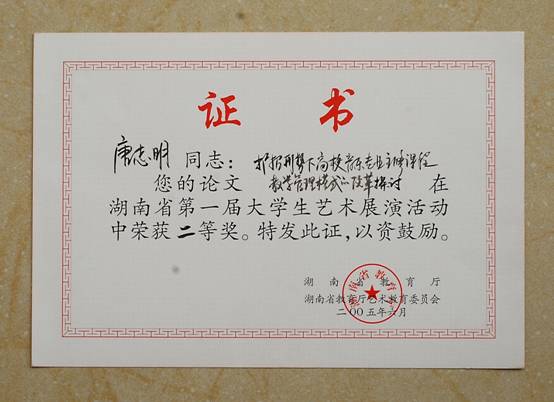 证书
康志明 同志：扩招形势下高校音乐专业主修课程
您的论文 教学管理模式的改革探讨 在
湖南省第一届大学生艺术展演活动
中荣获二等奖。特发此证，以资鼓励。
湖南省教育厅
湖南省教育厅艺术教育委员会
二00五年六月